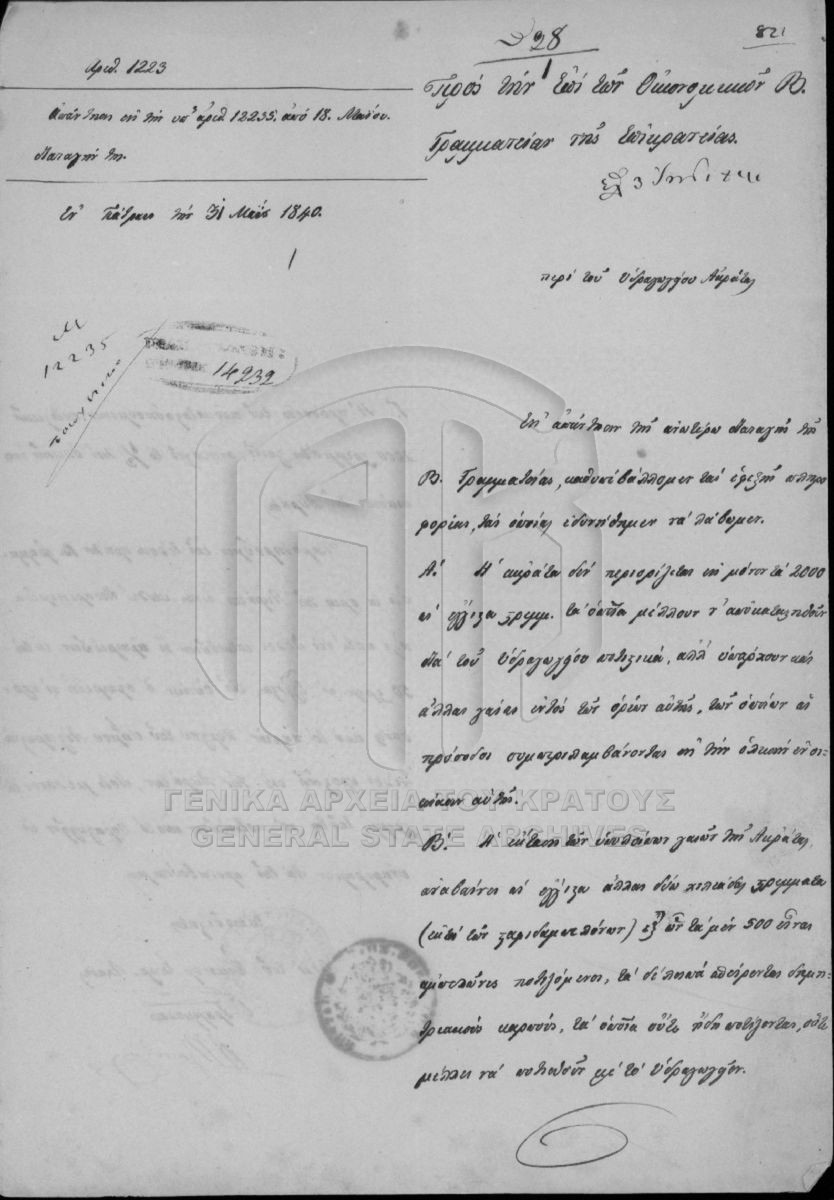 821
28
Ἀριθ. 1223
Ἀπάντησις εἰς τὴν ὑπ' ἀριθ 12235. ἀπὸ 18. Μαΐου.
Διαταγήν της.
Ἐν Πάτραις τὴν 31 Μαΐου 1840.
Πρὸς τὴν ἐπὶ τῶν Οἰκονομικῶν Β.
Γραμματείαν τῆς Ἐπικρατείας.
περὶ τοῦ Ὑδραγωγείου Ἀκράτας
12235
14232
Εἰς ἀπάντησιν τῆς ἀνωτέρω Διαταγῆς τῆς
Β. Γραμματείας, καθυποβάλλομεν τὰς ἑφεξῆς πληρο
φορίας, τὰς ὁποίας ἐδυνήθημεν νὰ λάβωμεν.
Α! Ἡ Ἀκράτα δὲν περιορίζεται εἰς μόνον τὰ 2000
ὡς ἔγγιστα στρέμμ. τὰ ὁποῖα μέλλουν ν' ἀποκατασταθοῦν
διὰ τοῦ Ὑδραγωγείου ποτιστικά, ἀλλ' ὑπάρχουν καὶ
ἄλλαι γαῖαι ἐντὸς τῶν ὁρίων αὐτῆς, τῶν ὁποίων αἱ
πρόσοδοι συμπεριλαμβάνονται εἰς τὴν ὁλικὴν ἐνοι-
κίασιν αὐτῆς.
Β! Ἡ ἔκτασις τῶν ὑπολοίπων γαιῶν τῆς Ἀκράτας
ἀναβαίνει ὡς ἔγγιστα ἄλλας δύω χιλιάδας στρέμματα
(ἐκτὸς τῶν σταφιδαμπελώνων) ἐξ ὧν τὰ μὲν 500 εἶναι
ἀμπελῶνες ποτιζόμενοι, τὰ δὲ λοιπὰ σπείρονται δημη-
τριακοὺς καρπούς, τὰ ὁποῖα οὔτε ἤδη ποτίζονται, οὔτε
μέλλει νὰ ποτισθοῦν μὲ τὸ Ὑδραγωγεῖον.
ΓΕΝΙΚΑ ΑΡΧΕΙΑ ΤΟΥ ΚΡΑΤΟΥΣ
GENERAL STATE ARCHIVES